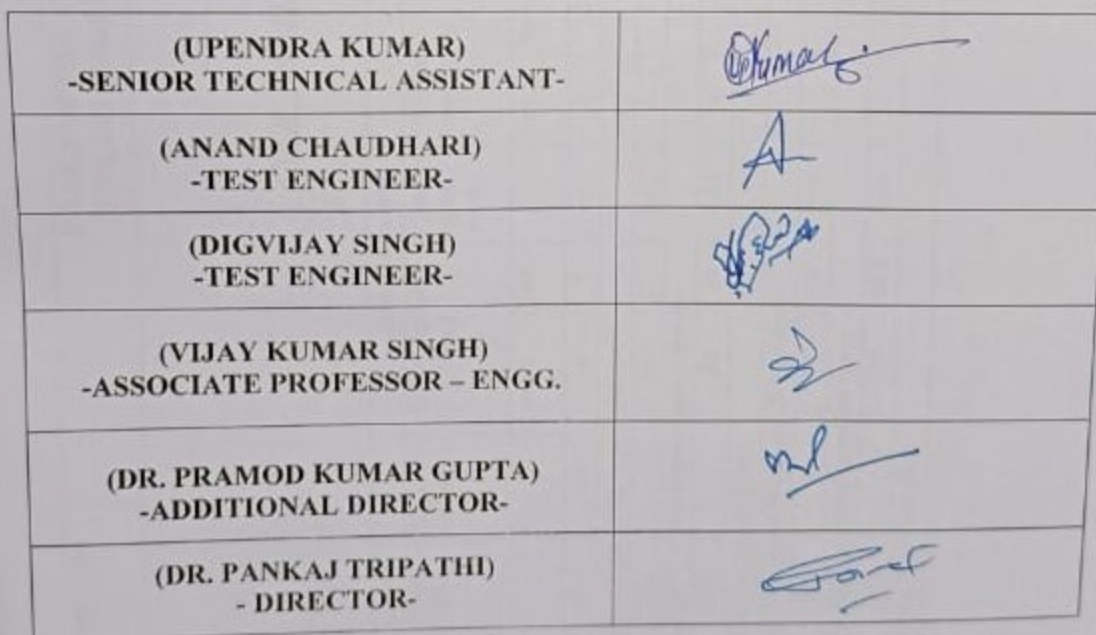 (UPENDRA KUMAR)
-SENIOR TECHNICAL ASSISTANT-
(ANAND CHAUDHARI)
-TEST ENGINEER-
(DIGVIJAY SINGH)
-TEST ENGINEER-
(VIJAY KUMAR SINGH)
-ASSOCIATE PROFESSOR – ENGG.
(DR. PRAMOD KUMAR GUPTA)
-ADDITIONAL DIRECTOR-
(DR. PANKAJ TRIPATHI)
- DIRECTOR-